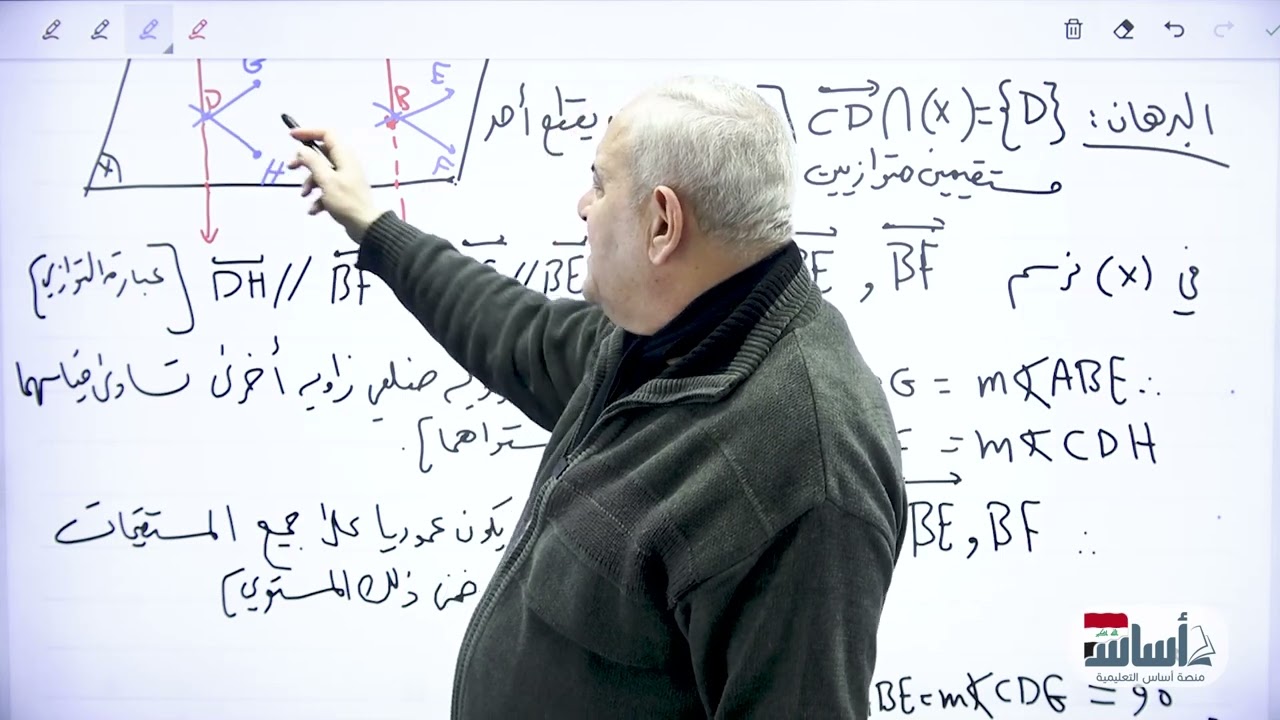 G E
D B
H F
(X)
البرهان: CD ∩ (X) = {D} [ يقطع أحد
مستقيمين متوازيين
في (X) نرسم BF , BE // BE DH // BF [عبارة التوازي]
∴ m∢ABE = G ضلعي زاوية أخرى تساوى قياسهما
m∢CDH =
∴ BE, BF يكون عموديا على جميع المستقيمات
ضمن ذلك المستوي]
BE = m∢CDG = 90
أساس
منصة أساس التعليمية